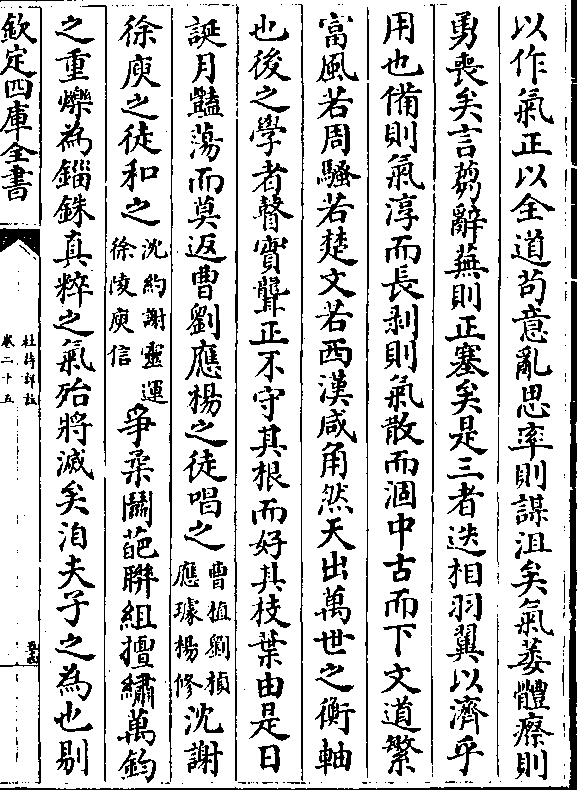 以作氣正以全道茍意亂思率則謀沮矣氣萎體瘵則
勇喪矣言蒭辭蕪則正塞矣是三者迭相羽翼以濟乎
用也備則氣淳而長剥則氣散而涸中古而下文道繁
富風若周騷若楚文若西漢咸角然天出萬世之衡軸
也後之學者瞽實聾正不守其根而好其枝葉由是日
誕月豔蕩而莫返曹劉應楊之徒唱之曹植劉楨應璩楊修沈謝
徐庾之徒和之沈約謝靈運徐陵庾信爭柔鬬葩聯組擅繡萬鈞
之重爍為錙銖真粹之氣殆將滅矣洎夫子之為也剔
欽定四庫全書
杜詩詳註
卷二十五